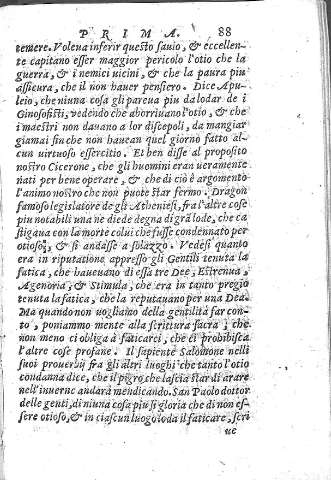 PRIMA. 88
temere. Voleua inferir questo sauio, & eccellen-
te capitano esser maggior pericolo l'otio che la
guerra, & i nemici uicini, & che la paura piu
assicura, che il non hauer pensiero. Dice Apu-
leio, che niuna cosa gli pareua piu da lodar de i
Ginosofisti, vedendo che aborriuano l'otio, & che
i maestri non dauano a lor discepoli, da mangiar
giamai fin che non hauean quel giorno fatto al-
cun uirtuoso essercitio. Et ben disse al proposito
nostro Cicerone, che gli huomini eran ueramente
nati per bene operare, & che di ciò è argomento
l'animo nostro che non puote star fermo. Dragon
famoso legislatore de gli Atheniesi, fra l'altre cose
piu notabili una ne diede degna di grã lode, che ca
stigaua con la morte colui che fusse condennato per
otioso, & si andasse a solazzo. Vedesi quanto
era in riputatione appresso gli Gentili tenuta la
fatica, che haueuano di essa tre Dee, Estrenua,
Agenoria, & Stimula, che era in tanto pregio
tenuta la fatica, che la reputauano per una Dea.
Ma quando non uogliamo della gentilità far con-
to, poniammo mente alla scrittura sacra, che
non meno ci obliga à faticarci, che ci prohibisca
l'altre cose profane. Il sapiente Salomone nelli
suoi prouerbij fra gli altri luoghi che tanto l'otio
condanna dice, che il pigro che lascia star di arare
nell'inuerno andarà mendicando. San Paolo dottor
delle genti, di niuna cosa piu si gloria che di non es-
sere otioso, & in ciascun luogo loda il faticare, scri
ue